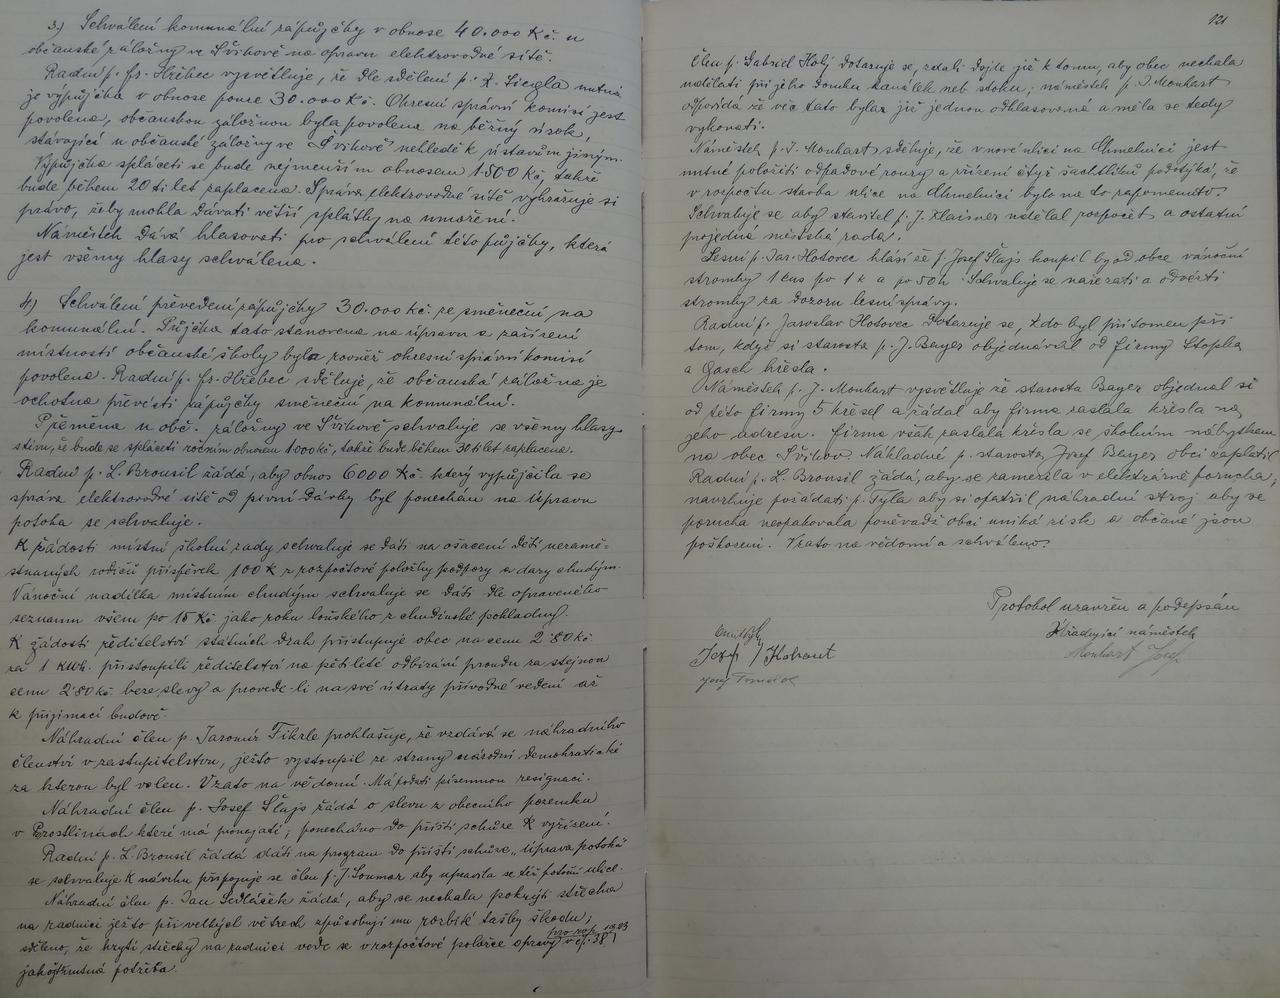 3.) Schválení komunální zápůjčky v obnose 40.000 Kč. u
občanské záložny ve Švihově na opravu elektrovodné sítě.
Radní p. Fr. Hřebec vysvětluje, že dle sdělení p. R. Siegla nutná
je výpůjčka v obnose pouze 30.000 Kč. Okresní správní komisí jest
povolena, občanskou záložnou byla povolena na běžný úrok,
stávající u občanské záložny ve Švihově nehledě k ústavům jiným.
Výpůjčka spláceti se bude nejmenším obnosem 1500 Kč, takže
bude během 20ti let zaplacena. Správa elektrovodné sítě vyhražuje si
právo, žeby mohla dávati větší splátky na umoření.
Náměstek dává hlasovati pro schválení této půjčky, která
jest všemy hlasy schválena.
4.) Schválení převedení zápůjčky 30.000 Kč. ze směneční na
komunální. Půjčka tato stanovena na úpravu a zařízení
místností občanské školy byla rovněž okresní správní komisí
povolena. Radní p. Fr. Hřebec sděluje, že občanská záložna je
ochotna převésti zápůjčky směneční na komunální.
Přeměna u obč. záložny ve Švihově schvaluje se všemy hlasy
s tím, že bude se spláceti ročním obnosem 1000 Kč, takže bude během 30ti let zaplacena.
Radní p. L. Brousil žádá, aby obnos 6000 Kč. který vypůjčila se
správa elektrovodné sítě od pivní dávky byl ponechán na úpravu
potoka se schvaluje.
K žádosti místní školní rady schvaluje se dáti na ošacení dětí nezamě-
stnaných rodičů příspěvek 100 K z rozpočtové položky podpory a dary chudým.
Vánoční nadílka místním chudým schvaluje se dáti dle opraveného
seznamu všem po 15 Kč. jako roku loňského z chudinské pokladny.
K žádosti ředitelství státních drah přistupuje obec na cenu 2.80 Kč.
za 1 kwh. přistoupí-li ředitelství na pětileté odbírání proudu za stejnou
cenu 2.80 Kč. beze slevy a provede-li na své útraty přívodné vedení až
k přijímací budově.
Náhradní člen p. Jaromír Fikrle prohlašuje, že vzdává se náhradního
členství v zastupitelstvu, ježto vystoupil ze strany národní demokratické
za kterou byl volen. Vzato na vědomí. Má podati písemnou resignaci.
Náhradní člen p. Josef Šlajs žádá o slevu z obecního pozemku
v Prostlinách které má pronajaté; ponecháno do příští schůze k vyřízení.
Radní p. L. Brousil žádá dáti na program do příští schůze „úprava potoka
se schvaluje k návrhu připojuje se člen p. J. Soumar aby upravila se též potoční ulice.
Náhradní člen p. Jan Sedláček žádá, aby se nechala pokrýti střecha
na radnici ježto při velkých větrech způsobují mu rozbité tašky škodu;
sděleno, že krytí střechy na radnici vede se v rozpočtové položce opravy v čp. 38
jako nutná potřeba.
121
Člen p. Gabriel Holý dotazuje se, zdali dojde již k tomu, aby obec nechala
udělati při jeho domku kanálek neb stoku; náměstek p. J. Monhart
odpovídá že věc tato byla již jednou odhlasována a měla se tedy
vykonati.
Náměstek p. J. Monhart sděluje, že v nové ulici na Chmelnici jest
nutné položiti odpadové roury a zřízení čtyř šachtlíků podotýká, že
v rozpočtu stavba ulice na Chmelnici bylo na to zapomenuto.
Schvaluje se aby stavitel p. J. Klaisner udělal rozpočet a ostatní
projedná městská rada.
Lesní p. Jar. Hotovec hlásí že p. Josef Šlajs koupil by od obce vánoční
stromky 1 kus po 1 k a po 50 h. Schvaluje se nařezati a odvésti
stromky za dozoru lesní správy.
Radní p. Jaroslav Hotovec dotazuje se, kdo byl přítomen při
tom, když si starosta p. J. Bayer objednával od firmy Stopka
a Gasch křesla.
Náměstek p. J. Monhart vysvětluje že starosta Bayer objednal si
od této firmy 5 křesel a žádal aby firma zaslala křesla na
jeho adresu. Firma však zaslala křesla se školním nábytkem
na obec Švihov. Nákladné p. starosta Josef Bayer obci zaplatil
Radní p. L. Brousil žádá, aby se zamezila v elektrárně porucha;
navrhuje požádati p. Tyla aby si opatřil náhradní stroj aby se
porucha neopakovala poněvadž obci uniká zisk a občané jsou
poškozeni. Vzato na vědomí a schváleno.
Protokol uzavřen a podepsán
Úřadující náměstek
Monhart Josef
Josef Kohout